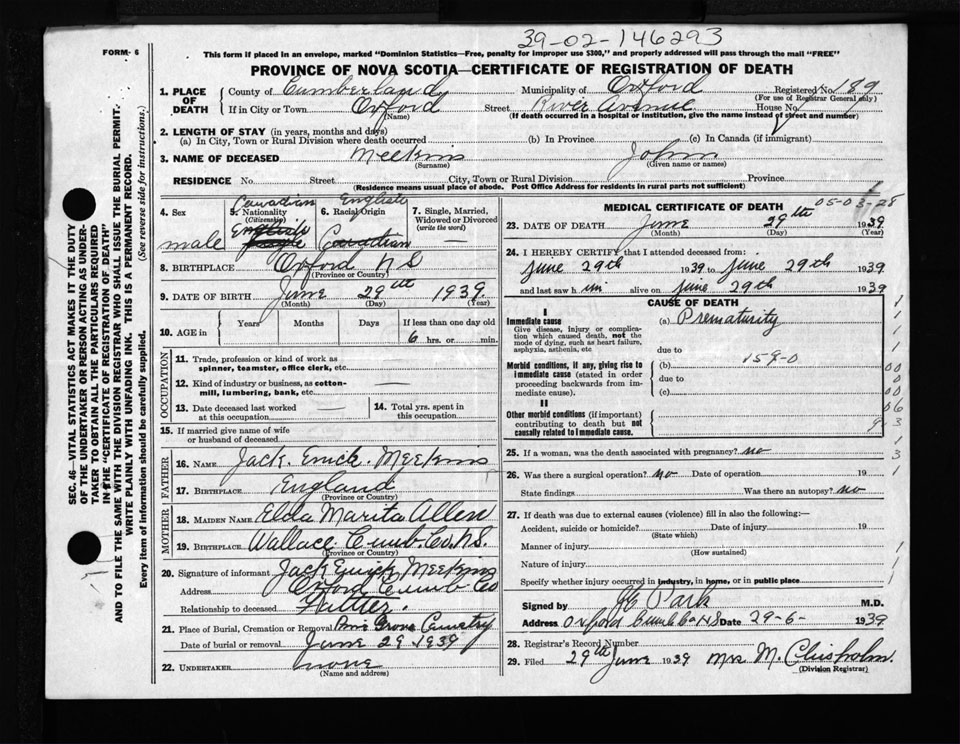 39-02-146293
FORM 6
This form if placed in an envelope, marked "Dominion Statistics—Free, penalty for improper use $300," and properly addressed will pass through the mail "FREE"
PROVINCE OF NOVA SCOTIA—CERTIFICATE OF REGISTRATION OF DEATH
1. PLACE OF DEATH
County of Cumberland Municipality of Oxford Registered No. 189
(For use of Registrar General only)
If in City or Town Oxford Street River Avenue House No.
(Name) (If death occurred in a hospital or institution, give the name instead of street and number)
2. LENGTH OF STAY (in years, months and days)
(a) In City, Town or Rural Division where death occurred (b) In Province (c) In Canada (if immigrant)
3. NAME OF DECEASED Meekins John
(Surname) (Given name or names)
RESIDENCE No. Street City, Town or Rural Division Province
(Residence means usual place of abode. Post Office Address for residents in rural parts not sufficient)
4. Sex male
5. Nationality (Citizenship) Canadian English
6. Racial Origin English Canadian
7. Single, Married, Widowed or Divorced (write the word) —
8. BIRTHPLACE Oxford N S
(Province or Country)
9. DATE OF BIRTH June 29th 1939
(Month) (Day) (Year)
10. AGE in Years Months Days If less than one day old
6 hrs. or min.
OCCUPATION
11. Trade, profession or kind of work as spinner, teamster, office clerk, etc.
12. Kind of industry or business, as cotton-mill, lumbering, bank, etc. —
13. Date deceased last worked at this occupation —
14. Total yrs. spent in this occupation
15. If married give name of wife or husband of deceased
FATHER
16. NAME Jack. Erick. Meekins
17. BIRTHPLACE England
(Province or Country)
MOTHER
18. MAIDEN NAME Elda Marita Allen
19. BIRTHPLACE Wallace Cumb. Co. N.S.
(Province or Country)
20. Signature of informant Jack Erick Meekins
Address Oxford Cumb Co
Relationship to deceased Father.
21. Place of Burial, Cremation or Removal Pine Grove Cemetry
Date of burial or removal June 29 1939
22. UNDERTAKER none
(Name and address)
MEDICAL CERTIFICATE OF DEATH
05-03-28
23. DATE OF DEATH June 29th 1939
(Month) (Day) (Year)
24. I HEREBY CERTIFY that I attended deceased from:
June 29th 1939 to June 29th 1939
and last saw him alive on June 29th 1939
CAUSE OF DEATH
I
Immediate cause (a) Prematurity
Give disease, injury or complication which caused death, not the mode of dying, such as heart failure, asphyxia, asthenia, etc
due to
159-0
Morbid conditions, if any, giving rise to immediate cause (stated in order proceeding backwards from immediate cause).
(b)
due to
(c)
II
Other morbid conditions (if important) contributing to death but not causally related to immediate cause.
25. If a woman, was the death associated with pregnancy? no
26. Was there a surgical operation? no Date of operation 19
State findings Was there an autopsy? no
27. If death was due to external causes (violence) fill in also the following:—
Accident, suicide or homicide? Date of injury 19
(State which)
Manner of injury
(How sustained)
Nature of injury
Specify whether injury occurred in industry, in home, or in public place
Signed by Park M.D.
Address Oxford Cumb Co N S Date 29-6- 1939
28. Registrar's Record Number
29. Filed 29th June 1939 Mrs M. Chisholm.
(Division Registrar)
SEC. 46—VITAL STATISTICS ACT MAKES IT THE DUTY
OF THE UNDERTAKER OR PERSON ACTING AS UNDER-
TAKER TO OBTAIN ALL THE PARTICULARS REQUIRED
IN THE "CERTIFICATE OF REGISTRATION OF DEATH"
AND TO FILE THE SAME WITH THE DIVISION REGISTRAR WHO SHALL ISSUE THE BURIAL PERMIT.
WRITE PLAINLY WITH UNFADING INK. THIS IS A PERMANENT RECORD.
Every item of information should be carefully supplied. (See reverse side for instructions.)